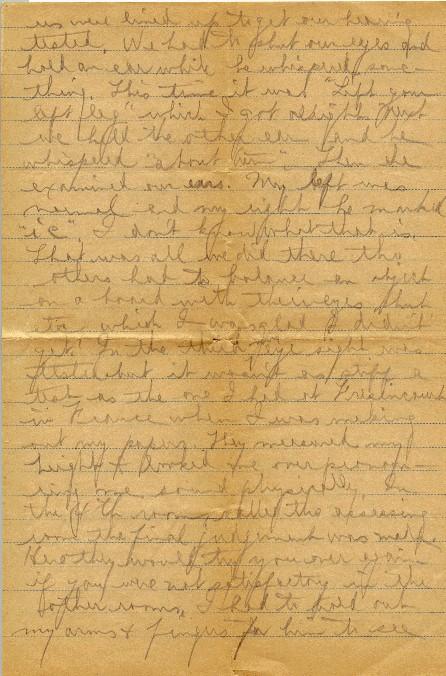 us were lined up to get our hearing
tested. We had to shut our eyes and
hold an ear while he whispered some-
thing. This time it was "Left your
left leg" which I got alright. Next
we held the other ear and he
whispered "about him". Then he
examined our ears. My left was
normal and my right he marked
"i c". I don't know what that is.
That was all we did there tho
others had to balance an object
on a board with their eyes shut
etc which I was glad I didn't
get. In the third eye sight was
tested but it wasn't as stiff a
test as the one I had at
in France when I was making
out my papers. They measured my
height & looked me over pronoun-
cing me sound physically. In
the 4th room, called the assessing
room the final judgement was made.
Here they would try you over again
if you were not satisfactory in the
other rooms. I had to hold out
my arms & fingers for him to see